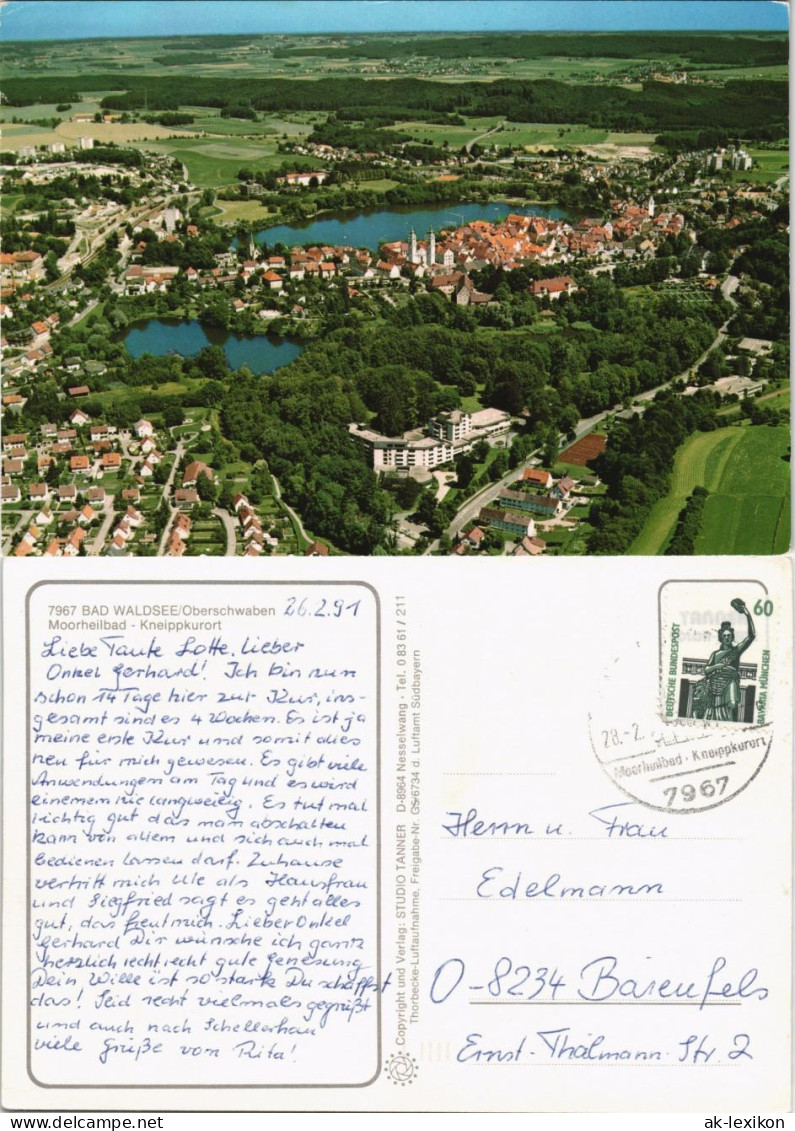 7967 BAD WALDSEE/Oberschwaben
Moorheilbad - Kneippkurort
26.2.91
Liebe Tante Lotte, lieber
Onkel Gerhard! Ich bin nun
schon 14 Tage hier zur Kur, ins-
gesamt sind es 4 Wochen. Es ist ja
meine erste Kur und somit alles
neu für mich gewesen. Es gibt viele
Anwendungen am Tag und es wird
einem nie langweilig. Es tut mal
richtig gut das man abschalten
kann von allem und sich auch mal
bedienen lassen darf. Zuhause
vertritt mich Ute als Hausfrau
und Siegfried sagt es geht alles
gut, das freut mich. Lieber Onkel
Gerhard Dir wünsche ich ganz
herzlich recht recht gute Genesung
Dein Wille ist so stark Du schaffst
das! Seid recht vielmals gegrüßt
und auch nach Schellerhau
viele Grüße von Rita!
Copyright und Verlag: STUDIO TANNER D-8964 Nesselwang - Tel. 0 83 61 / 211
Thorbecke-Luftaufnahme, Freigabe-Nr. GS/6734 d. Luftamt Südbayern
60
DEUTSCHE BUNDESPOST
BAVARIA MÜNCHEN
28.-2.
Moorheilbad - Kneippkurort
7967
Herrn u. Frau
Edelmann
O-8234 Bärenfels
Ernst-Thälmann-Str. 2
ak-lexikon.de
ak-lexikon